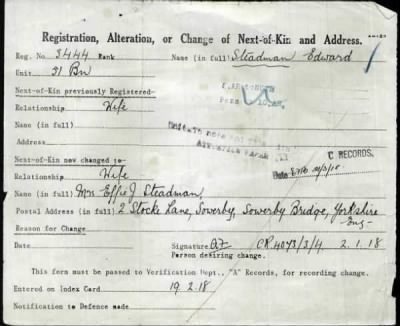 Registration, Alteration, or Change of Next-of-Kin and Address.
Reg. No. 3444 Rank Name (in full) Steadman Edward
Unit. 31 Bn
Next-of-Kin previously Registered-
Relationship Wife
Name (in full)
Address
C RECORDS.
Next-of-Kin now changed to-
Relationship Wife
Name (in full) Mrs Effie J Steadman
Postal Address (in full) 2 Stocke Lane, Sowerby, Sowerby Bridge, Yorkshire
Eng-
Reason for Change
Date Signature CR 4073/3/4 2.1.18
Person desiring change.
This form must be passed to Verification Dept., "A" Records, for recording change.
Entered on Index Card 19.2.18
Notification to Defence made